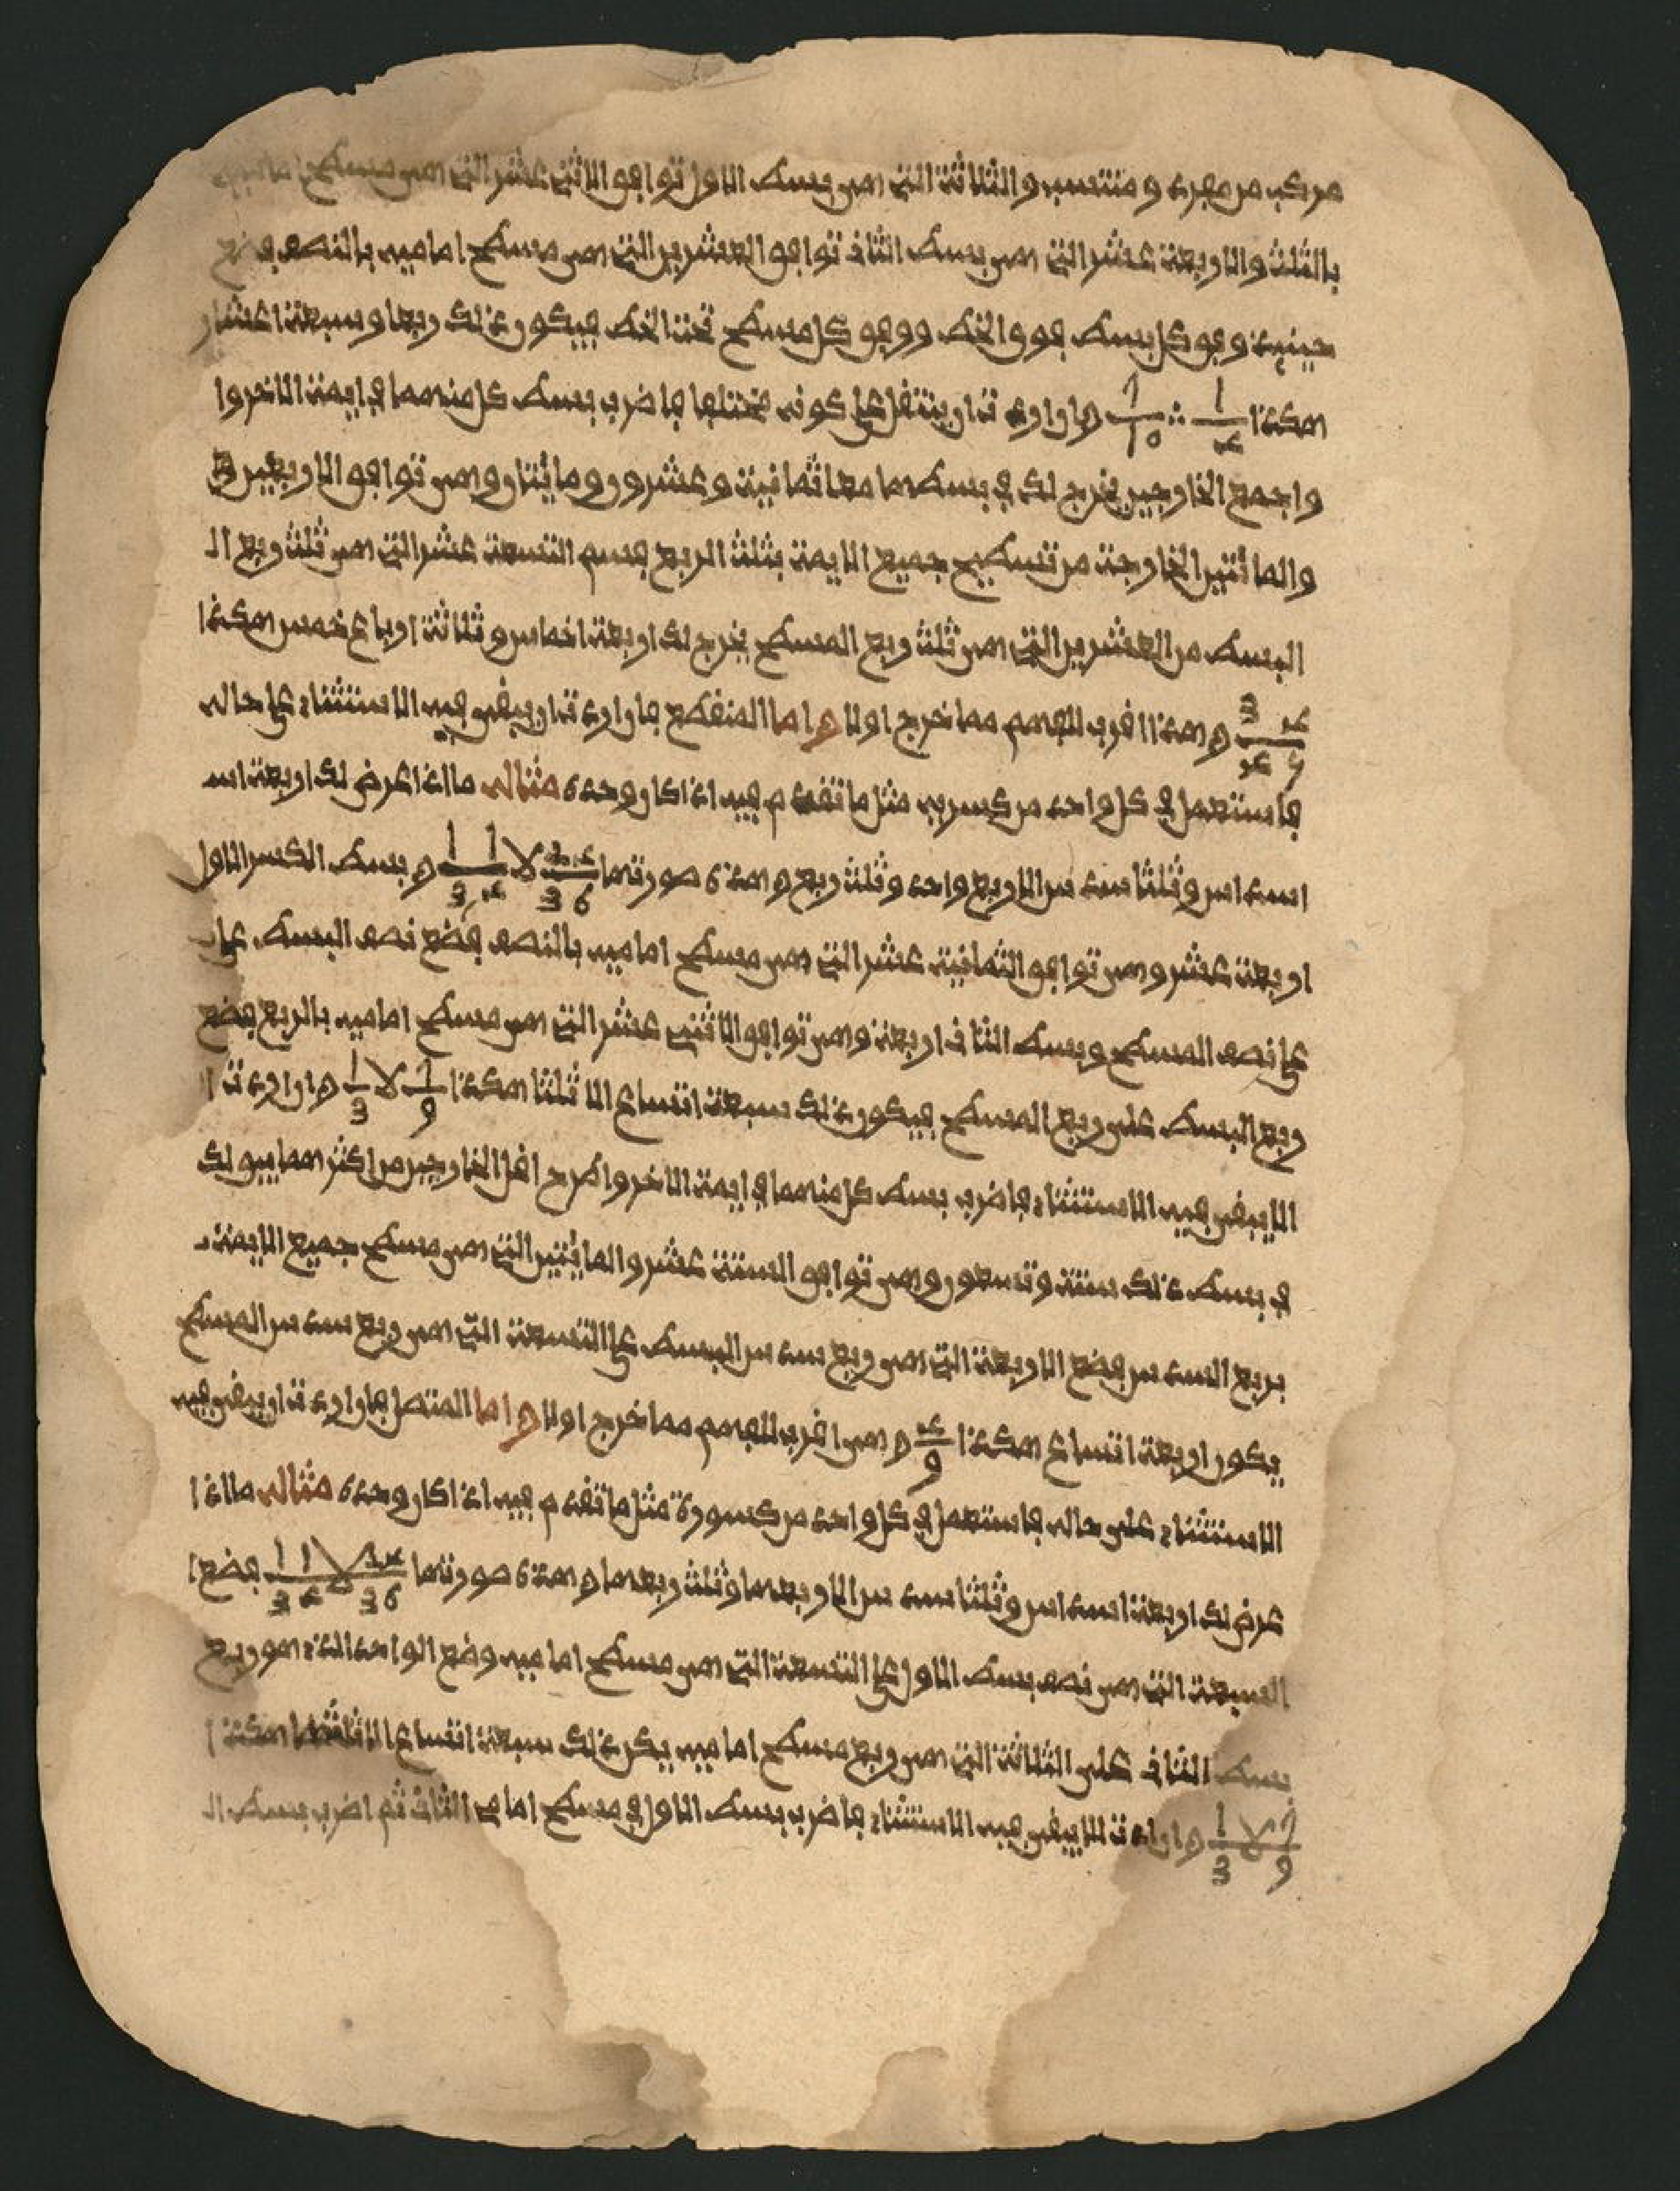 مركب من مفرد و منتسب والثلاثة التي هي بسط الاول توافق الاثني عشر التي هي مسطح امامه
بالثلث والاربعة عشر التي هي بسط الثاني توافق العشرين التي هي مسطح اماميه بالنصف فضع
حينئذ وفق كل بسط فوق الخط ووفق كل مسطح تحت الخط فيكون ذلك ربعا وسبعة اعشار
هكذا 1/4 ∴ 7/10 فان اردت ان ينتقل على كونه مختلفا فاضرب بسط كل منهما في ايمة الاخر و
واجمع الخارجين يخرج لك في بسطهما معا ثمانية وعشرون ومايتان وهي توافق الاربعين
والمائتين الخارجة من تسطيح جميع الايمة بثلث الربع فسم التسعة عشر التي هي ثلث ربع
البسط من العشرين التي هي ثلث ربع المسطح يخرج لك اربعة اخماس وثلاثة ارباع خمس هكذا
3 4/4 5 وهذا اقرب للفهم مما خرج اولا واما المنقطع فان اردت ان يبقى فيه الاستثناء على حاله
فاستعمل في كل واحد من كسريه مثل ما تقدم فيه اذا كان وحده مثاله ما اذا عرض لك اربعة
اسداس وثلثا سدس الا ربع واحد وثلث ربع وهذه صورتها 2 4/3 6 لا 1 1/3 4 بسط الكسر الاول
اربعة عشر وهي توافق الثمانية عشر التي هي مسطح اماميه بالنصف فضع نصف البسط
على نصف المسطح وبسط الثاني اربعة وهي توافق الاثني عشر التي هي مسطح اماميه بالربع فضع
ربع البسط على ربع المسطح فيكون ذلك سبعة اتساع الا ثلثا هكذا 7/9 لا 1/3 وان اردت ا
الا يبقى فيه الاستثناء فاضرب بسط كل منهما في ايمة الاخر واطرح اقل الخارجين من اكثرهما يبق لك
في بسط ذلك ستة وتسعون وهي توافق الستة عشر والمايتين التي هي مسطح جميع الايمة
بربع السدس فضع الاربعة التي هي ربع سدس البسط على التسعة التي هي ربع سدس المسطح
يكون اربعة اتساع هكذا 4/9 وهي اقرب للفهم مما خرج اولا واما المتصل فان اردت ان يبقى فيه
الاستثناء على حاله فاستعمل في كل واحد من كسوره مثل ما تقدم فيه اذا كان وحده مثاله ما اذا
عرض لك اربعة اسداس وثلثا سدس الا ربعهما وثلث ربعهما وهذه صورتها 2 4/3 6 لا 1 1/3 4 فضع
السبعة التي هي نصف بسط الاول على التسعة التي هي مسطح اماميه وضع الواحد الذي هو ربع
بسط الثاني على الثلاثة التي هي ربع مسطح اماميه يكن ذلك سبعة اتساع الا ثلثها هكذا
7/9 لا 1/3 وان اردت الا يبقى فيه الاستثناء فاضرب بسط الاول في مسطح امام الثاني ثم اضرب بسط